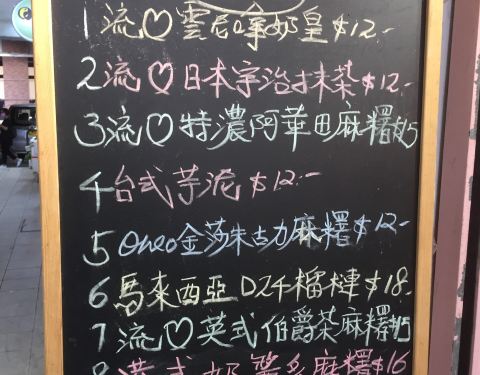 1 流♡雲尼嗱奶皇$12.-
2 流♡日本宇治抹茶$12.-
3 流♡特濃阿華田麻糬$15
4 台式芋泥$12.-
5 Oreo金莎朱古力麻糬$12-
6 馬來西亞D24榴槤$18.
7 流♡英式伯爵茶麻糬$15
8 港式奶醬多麻糬$16